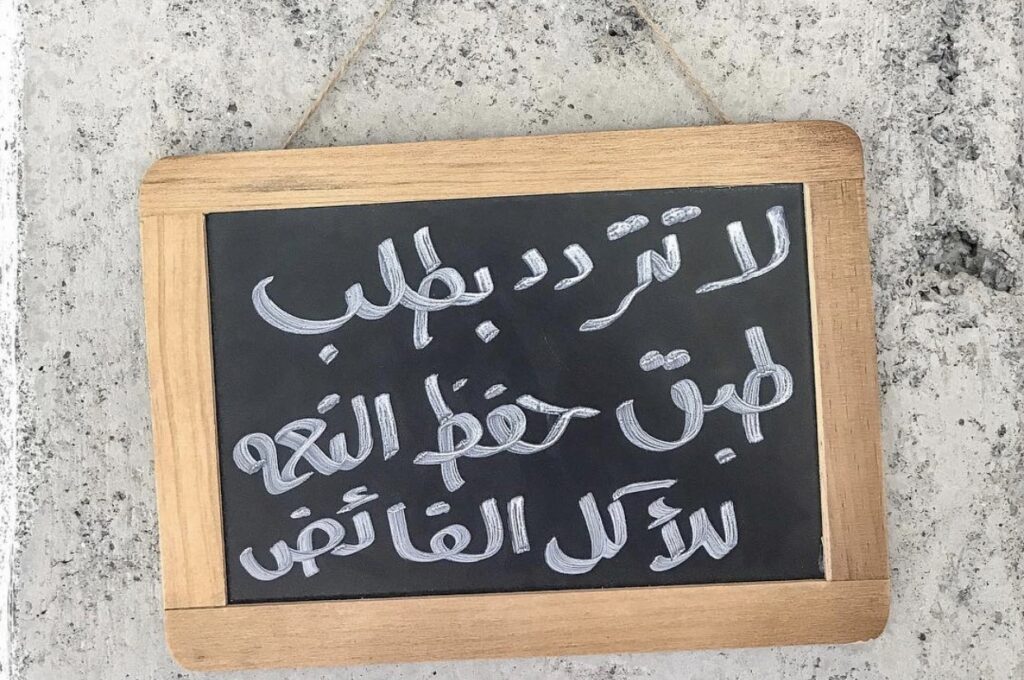 لا تتردد بطلب
طبق حفظ النعمه
للأكل الفائض